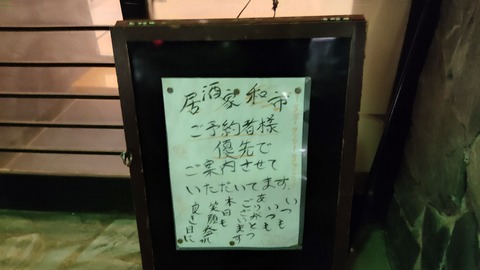 居酒家和市
ご予約者様
優先で
ご案内させて
いただいてます。
いつも
いつも
ありがとう
ございます
本日も
笑顔
良き日に